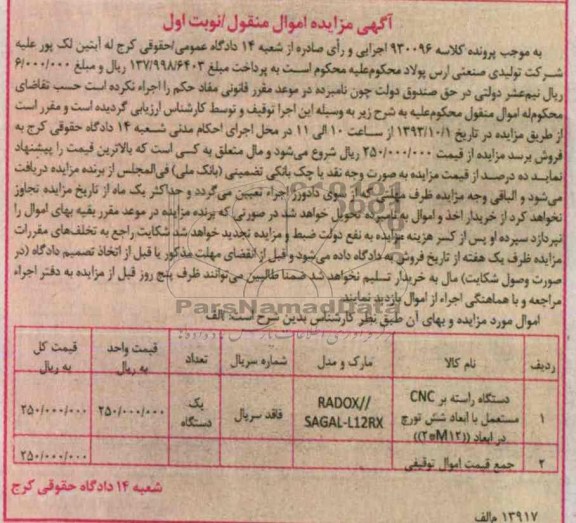 آگهی مزایده اموال منقول/نوبت اول
به موجب پرونده کلاسه ۹۳۰۰۹۶ اجرایی و رأی صادره از شعبه ۱۴ دادگاه عمومی/حقوقی کرج له آبتین لک پور علیه
شرکت تولیدی صنعتی ارس پولاد محکوم‌علیه محکوم است به پرداخت مبلغ ۱۳۷/۹۹۸/۶۴۰۳ ریال و مبلغ ۶/۰۰۰/۰۰۰
ریال نیم‌عشر دولتی در حق صندوق دولت چون نامبرده در موعد مقرر قانونی مفاد حکم را اجراء نکرده است حسب تقاضای
محکوم‌له اموال منقول محکوم‌علیه به شرح زیر به وسیله این اجرا توقیف و توسط کارشناس ارزیابی گردیده است و مقرر است
از طریق مزایده در تاریخ ۱۳۹۳/۱۰/۱ از ساعت ۱۰ الی ۱۱ در محل اجرای احکام مدنی شعبه ۱۴ دادگاه حقوقی کرج به
فروش برسد مزایده از قیمت ۲۵۰/۰۰۰/۰۰۰ ریال شروع می‌شود و مال متعلق به کسی است که بالاترین قیمت را پیشنهاد
نماید ده درصد از قیمت مزایده به صورت وجه نقد یا چک بانکی تضمینی (بانک ملی) فی‌المجلس از برنده مزایده دریافت
می‌شود و الباقی وجه مزایده ظرف مدتی که از سوی دادورز اجراء تعیین می‌گردد و حداکثر یک ماه از تاریخ مزایده تجاوز
نخواهد کرد از خریدار اخذ و اموال به نامبرده تحویل خواهد شد در صورتی که برنده مزایده در موعد مقرر بقیه بهای اموال را
نپردازد سپرده او پس از کسر هزینه مزایده به نفع دولت ضبط و مزایده تجدید خواهد شد شکایت راجع به تخلف‌های مقررات
مزایده ظرف یک هفته از تاریخ فروش به دادگاه داده می‌شود و قبل از انقضای مهلت مذکور یا قبل از اتخاذ تصمیم دادگاه (در
صورت وصول شکایت) مال به خریدار تسلیم نخواهد شد ضمنا طالبین می‌توانند ظرف پنج روز قبل از مزایده به دفتر اجراء
مراجعه و با هماهنگی اجراء از اموال بازدید نمایند
اموال مورد مزایده و بهای آن طبق نظر کارشناس بدین شرح است: الف
ParsNamadData
ردیف نام کالا مارک و مدل شماره سریال تعداد قیمت واحد به ریال قیمت کل به ریال
۱ دستگاه راسته بر CNC مستعمل با ابعاد شش تورچ در ابعاد ((۲*M۱۲)) RADOX// SAGAL-L12RX فاقد سریال یک دستگاه ۲۵۰/۰۰۰/۰۰۰ ۲۵۰/۰۰۰/۰۰۰
۲ جمع قیمت اموال توقیفی ۲۵۰/۰۰۰/۰۰۰
شعبه ۱۴ دادگاه حقوقی کرج
۱۳۹۱۷ م/الف